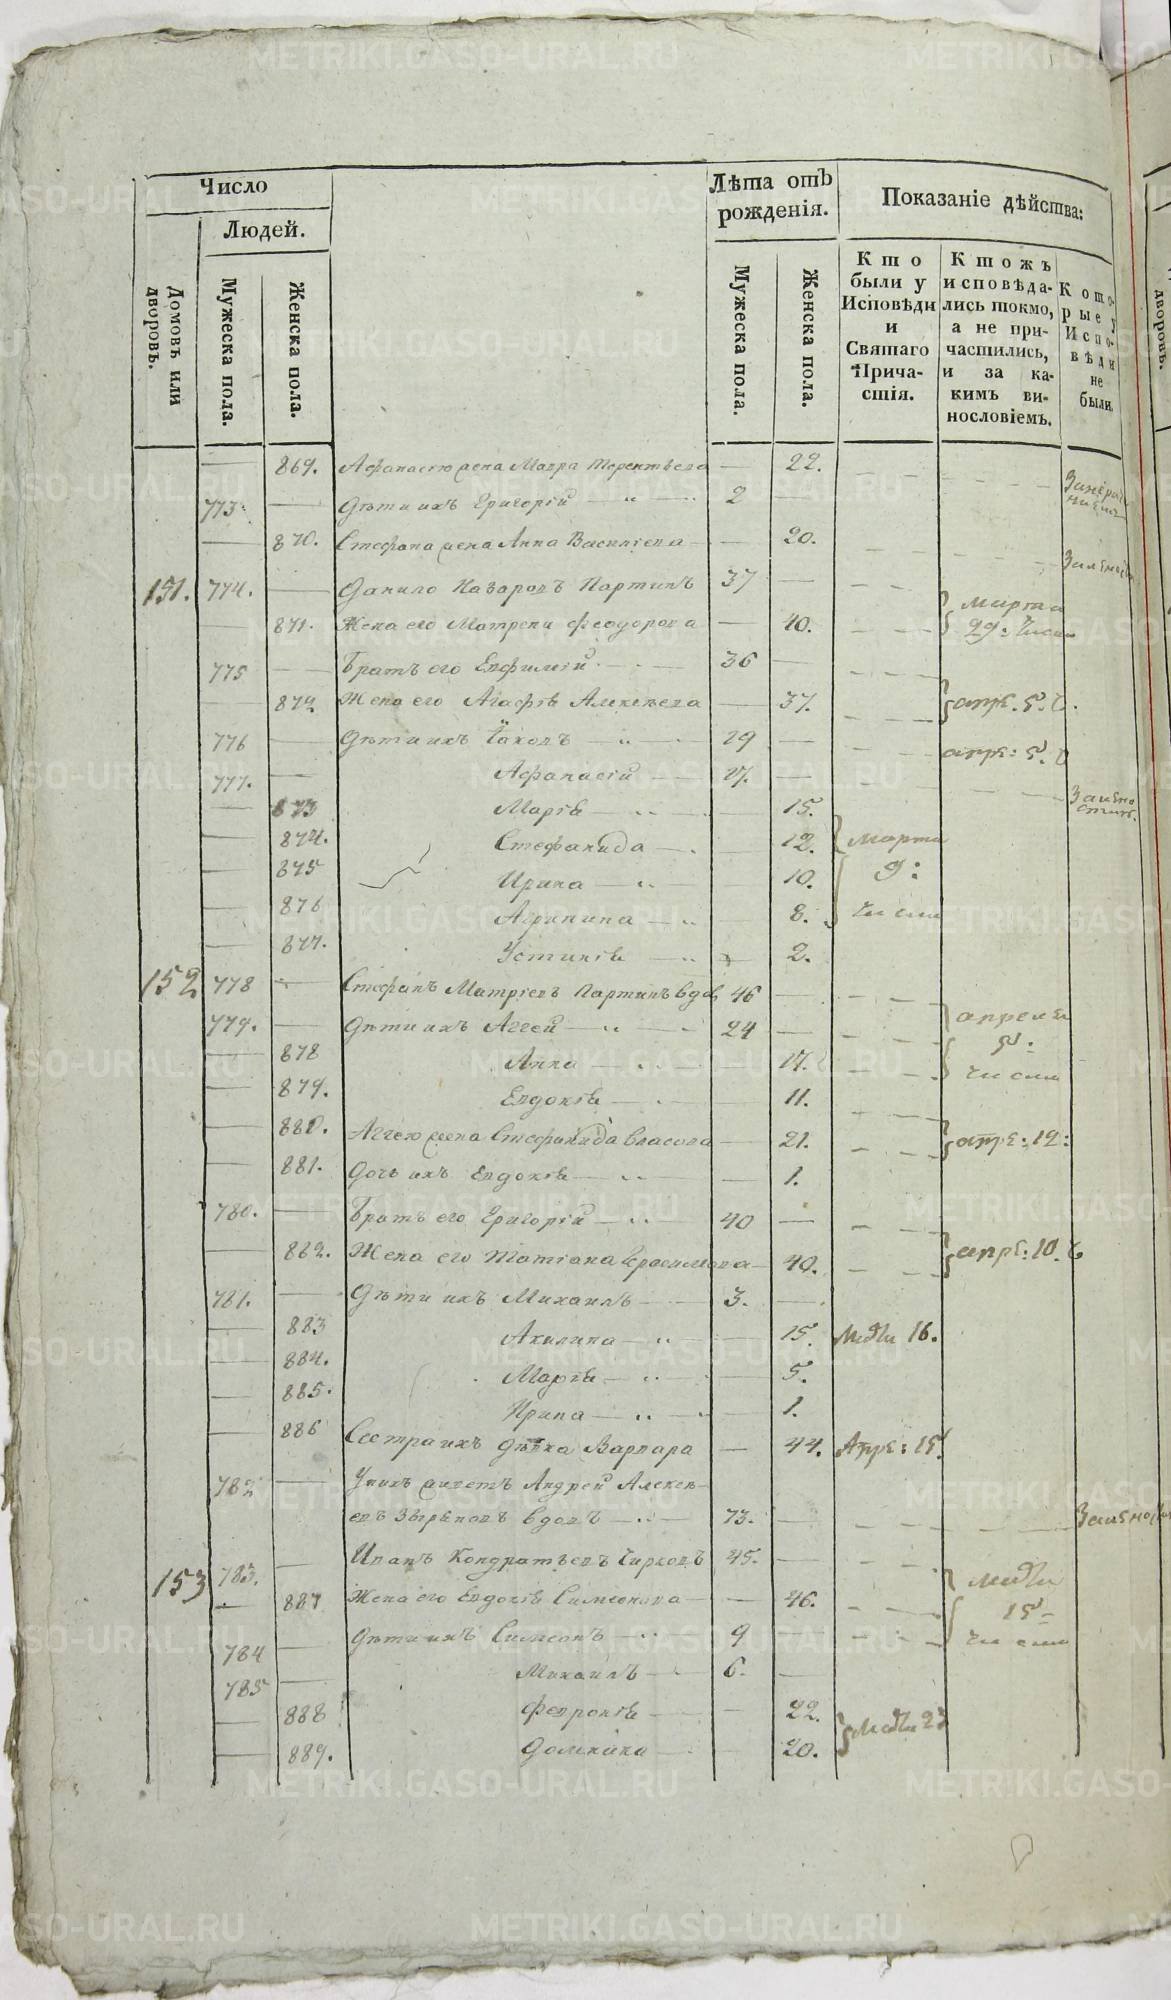 Число
Людей.
Домовъ или дворовъ.
Мужеска пола.
Женска пола.
Лѣта отъ рожденія.
Мужеска пола.
Женска пола.
Показаніе дѣйства:
Кто были у Исповѣди и Святаго Причастія.
Ктожъ исповѣдались токмо, а не причастились, и за какимъ винословіемъ.
Которые у Исповѣди не были.
869. Афанасию жена Мавра Терентьева — 22.
773. — Дѣти ихъ Григорій — 2 —
870. Стефана жена Анна Василіева — 20.
151. 774. — Данило Назаровъ Партинъ 37 — марта
871. Жена его Матрена Феодорова — 40. 29: числа
775 — Братъ его Евфимій — 36 —
872 Жена его Агафія Алексѣева — 37. апре. 5. ч.
776 — Дѣти ихъ Іаковъ — 19 — апре: 5. ч
777. — Афанасій — 17. —
873 Марія — 15.
874. Стефанида — 12. марта
875 Ирина — 10. 9:
876 Агрипина — 8. числа
877. Устинія — 2.
152 778 — Стефанъ Матвіевъ Партинъ вдов 46 —
779. — Дѣти ихъ Аггей — 24 — апреля
878 Анна — 17. 5: числа
879. Евдокія — 11.
880. Аггею жена Стефанида Власова — 21. апре: 12:
881. Дочь ихъ Евдокія — 1.
780. — Братъ его Григорій — 40 —
882. Жена его Татіана Герасимова — 40. апре: 10. ч
781. — Дѣти ихъ Михаилъ — 3. —
883 Акилина — 15. Маія 16.
884. Марія — 5.
885. Ирина — 1.
886 Сестра ихъ дѣвка Варвара — 44. Апре: 15.
782 — У нихъ живетъ Андрей Алексѣ-
евъ Зыряновъ вдовъ — 73. —
153 783. — Иванъ Кондратьевъ Чирковъ 45. — маія
887 Жена его Евдокія Симеонова — 46. 15:
784 — Дѣти ихъ Симеонъ — 9 — числа
785 — Михаилъ — 6. —
888 Февронія — 22. Маія 23
889. Домника — 20.
METRIKI.GASO-URAL.RU